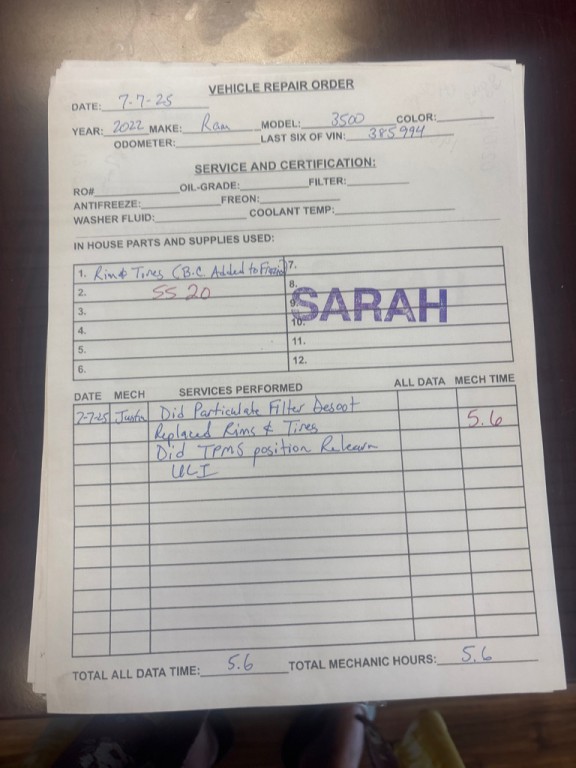 VEHICLE REPAIR ORDER
DATE: 7-7-25
YEAR: 2022 MAKE: Ram MODEL: 3500 COLOR:
ODOMETER: LAST SIX OF VIN: 385994
SERVICE AND CERTIFICATION:
RO# OIL-GRADE: FILTER:
ANTIFREEZE: FREON:
WASHER FLUID: COOLANT TEMP:
IN HOUSE PARTS AND SUPPLIES USED:
1. Rim & Tires (B.C. Added to 7.
2. SS 20 8.
3. 9.
SARAH
4. 10.
5. 11.
6. 12.
DATE MECH SERVICES PERFORMED ALL DATA MECH TIME
7-7-25 Justin Did Particulate Filter Desoot 5.6
Replaced Rims & Tires
Did TPMS position Relearn
UCI
TOTAL ALL DATA TIME: 5.6 TOTAL MECHANIC HOURS: 5.6